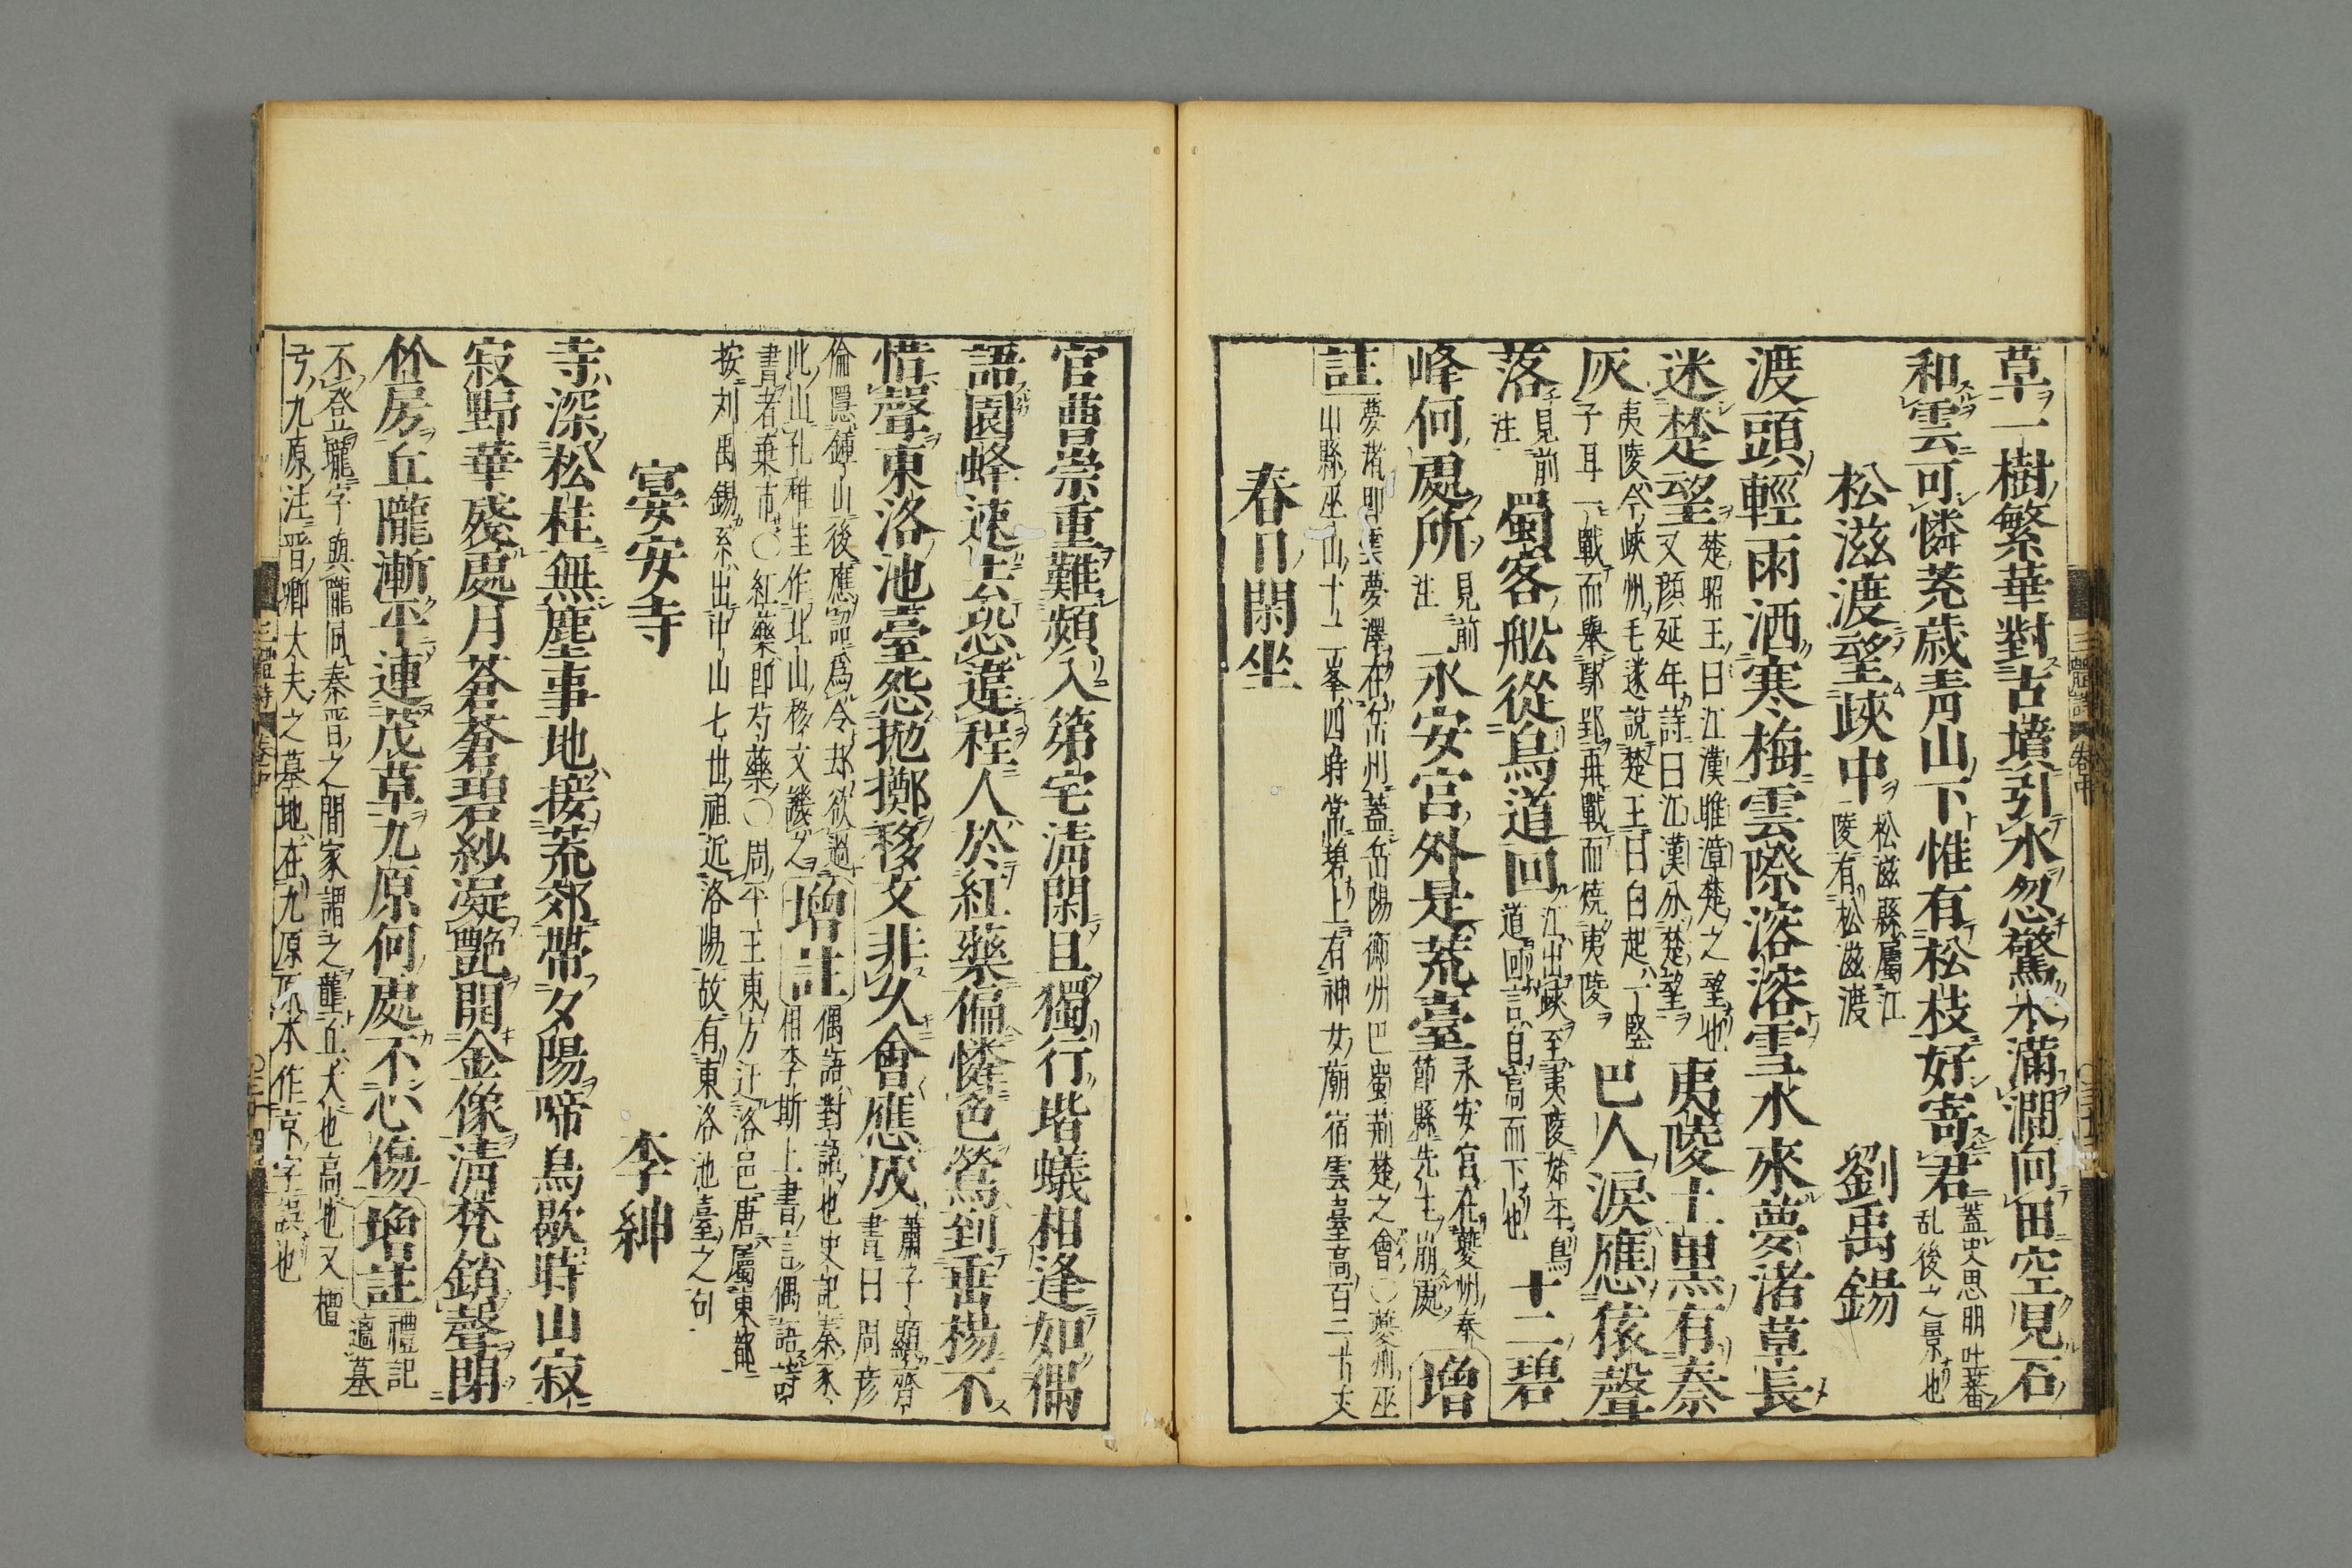 草一樹繁華對古墳引水忽驚氷滿澗向田空見石
和雲可憐荒歳青山下惟有松枝好寄君
蓋史思明吐蕃
乱後之景也
松滋渡望峽中
松滋縣屬江
陵有松滋渡
劉禹錫
渡頭輕雨洒寒梅雲際溶溶雪水來夢渚草長
迷楚望
楚昭王曰江漢雎漳楚之望也
又顔延年詩曰江漢分楚望
夷陵土黒有秦
灰
夷陵今峽州毛遂說楚王曰白起小竪
子耳一戰而舉鄢郢再戰而燒夷陵
巴人淚應猿聲
落
見前
注
蜀客舩從鳥道回
江出峽至夷陵始平鳥
道回言自高而下也
十二碧
峰何處所
見前
注
永安宮外是荒臺
永安宮在夔州奉
節縣先主崩處
增
註
夢渚即雲夢澤在岳州蓋岳陽衡州巴蜀荊楚之會○夔州巫
山縣巫山十二峯四時常碧上有神女廟宿雲臺高百二十丈
春日閑坐
三體詩 卷中
官曹崇重難頻入第宅清閑且獨行堦蟻相逢如偶
語園蜂速去恐違程人於紅藥偏憐色鶯到垂楊不
惜聲東洛池臺怨抛擲移文非久會應成
蕭子顯齊
書曰周彦
倫隱鍾山後應詔爲令却欲過
此山孔稚圭作北山移文譏之
增註
偶語對語也史記秦本
書者棄市○紅藥即芍藥○周平王東方迁洛邑唐屬東都
按刘禹錫系出中山七世祖近洛陽故有東洛池臺之句
宴安寺
李紳
寺深松桂無塵事地接荒郊帶夕陽啼鳥歇時山寂
寂野華殘處月蒼蒼碧紗凝艷開金像清梵銷聲閉
竹房丘隴漸平連茂草九原何處不心傷
增註
禮記
適墓
不登壟字與隴同秦晋之間家謂之壟丘大也高也又檀
弓九原注晋卿大夫之墓地在九原原本作京字誤也
三體詩 卷中